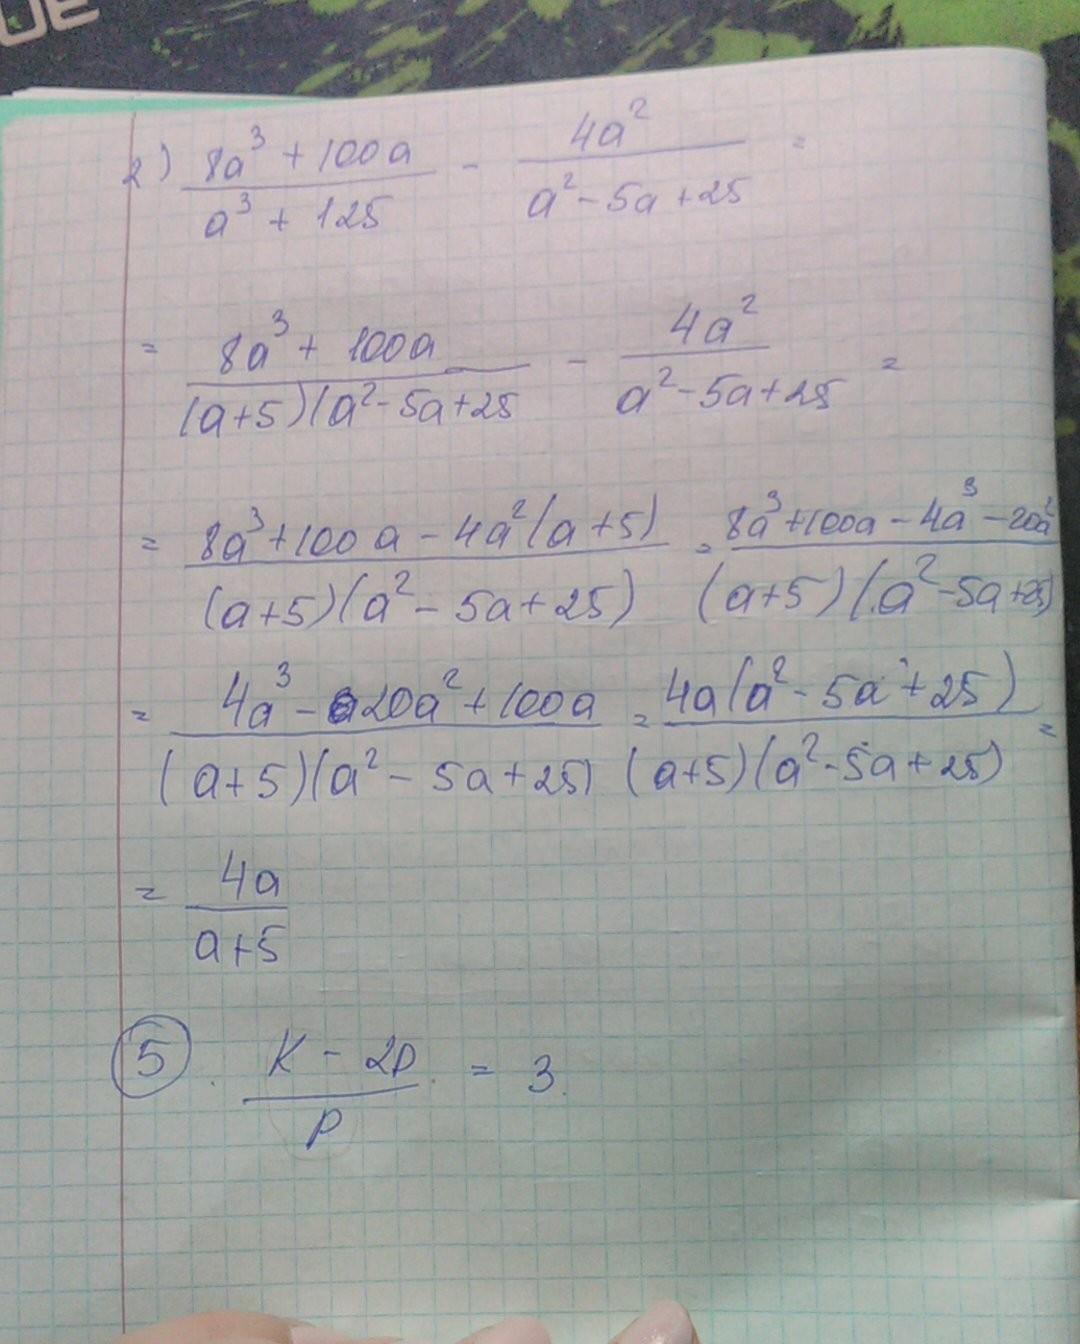 UE
2) (8a³ + 100a)/(a³ + 125) - 4a²/(a² - 5a + 25) =
= (8a³ + 100a)/((a+5)(a² - 5a + 25) - 4a²/(a² - 5a + 25) =
= (8a³ + 100a - 4a²(a + 5))/((a+5)(a² - 5a + 25)) = (8a³ + 100a - 4a³ - 20a²)/((a+5)(a² - 5a + 25))
= (4a³ - 20a² + 100a)/((a+5)(a² - 5a + 25)) = (4a(a² - 5a + 25))/((a+5)(a² - 5a + 25)) =
= 4a/(a+5)
5 (K - 2p)/p = 3